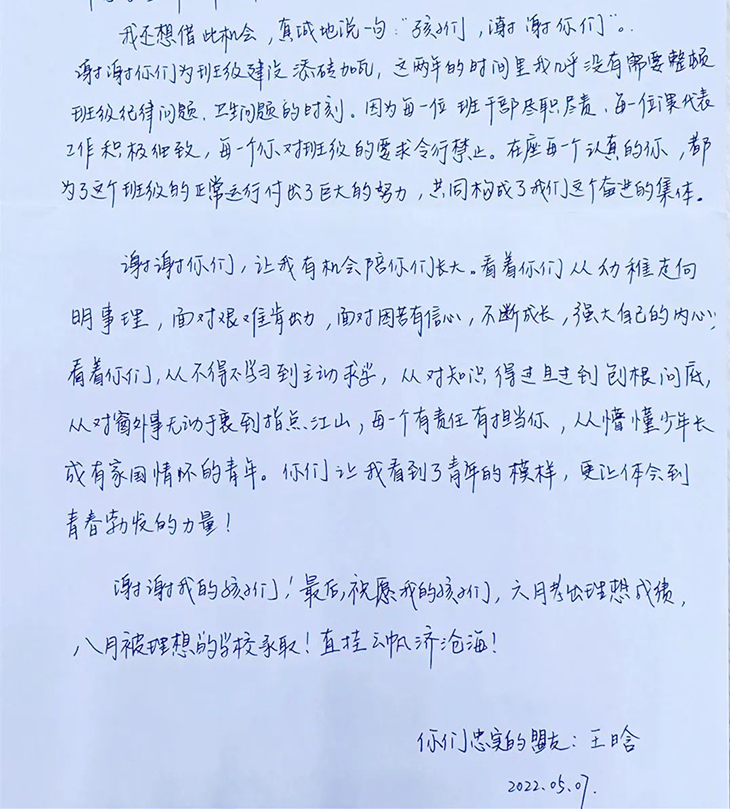 我还想借此机会，真诚地说一句：“孩子们，谢谢你们”。
谢谢你们为班级建设添砖加瓦，这两年的时间里我几乎没有需要整顿
班级纪律问题、卫生问题的时刻。因为每一位班干部尽职尽责、每一位课代表
工作积极细致，每一个你对班级的要求令行禁止。在座每一个认真的你，都
为了这个班级的正常运行付出了巨大的努力，共同构成了我们这个奋进的集体。
谢谢你们，让我有机会陪你们长大。看着你们从幼稚走向
明事理，面对艰难肯出力，面对困苦有信心，不断成长，强大自己的内心；
看着你们，从不得不学习到主动求学，从对知识得过且过到刨根问底，
从对窗外事无动于衷到指点江山，每一个有责任有担当你，从懵懂少年长
成有家国情怀的青年。你们让我看到了青年的模样，更让体会到
青春勃发的力量！
谢谢我的孩子们！最后，祝愿我的孩子们，六月考出理想成绩，
八月被理想的学校录取！直挂云帆济沧海！
你们忠实的盟友：王晗
2022.05.07.